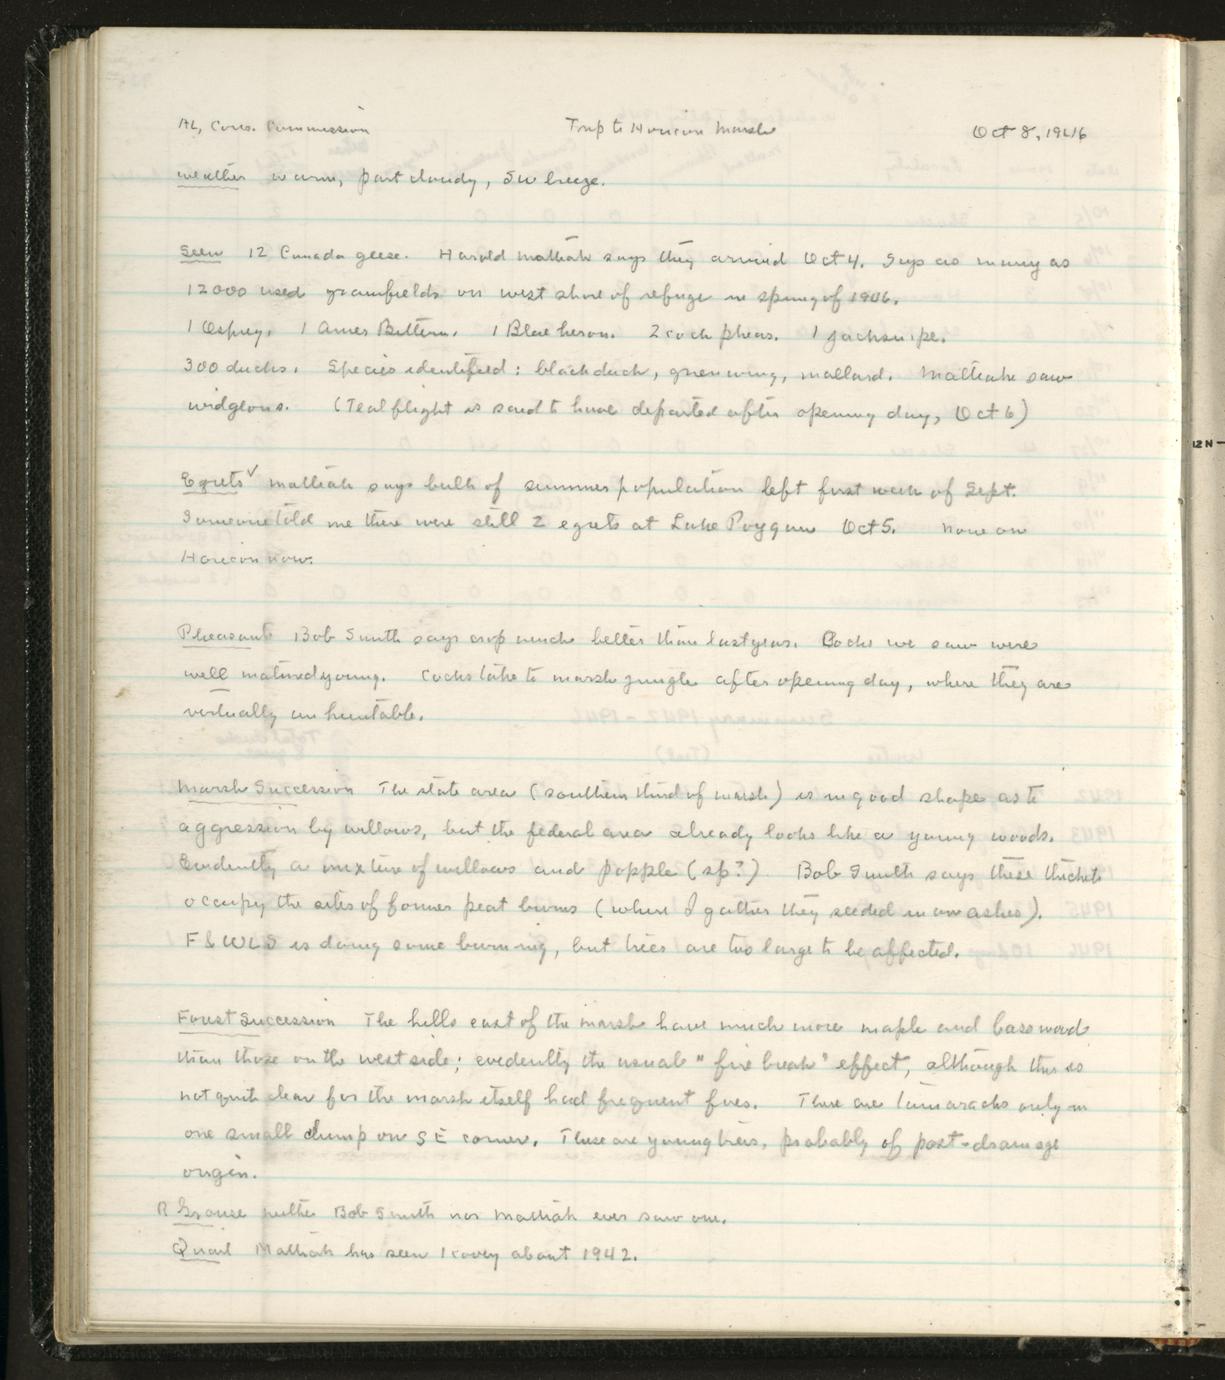 AL, Cons. Commission Trip to Horicon Marsh Oct 8, 1946
weather warm, part cloudy, SW breeze.
Seen 12 Canada geese. Harold Mathiak says they arrived Oct 4. Says as many as
12000 used grainfields on west shore of refuge in spring of 1946.
1 Osprey. 1 Amer Bittern. 1 Blue heron. 2 cock pheas. 1 jacksnipe.
300 ducks. Species identified: black duck, greenwing, mallard. Mathiak saw
widgeons. (Teal flight is said to have departed after opening day, Oct 6)
Egrets ✓ Mathiak says bulk of summer population left first week of Sept.
Someone told me there were still 2 egrets at Lake Poygan Oct 5. None on
Horicon now.
Pheasants Bob Smith says crop much better than last year. Cocks we saw were
well matured young. Cocks take to marsh jungle after opening day, where they are
virtually unhuntable.
Marsh Succession The state area (southern third of marsh) is in good shape as to
aggression by willows, but the federal area already looks like a young woods.
Evidently a mixture of willows and popple (sp?) Bob Smith says these thickets
occupy the sites of former peat burns (where I gather they seeded in on ashes).
F&WLS is doing some burning, but trees are too large to be affected.
Forest Succession The hills east of the marsh have much more maple and basswood
than those on the west side; evidently the usual "fire break" effect, although this is
not quite clear for the marsh itself had frequent fires. There are tamaracks only in
one small clump on SE corner. These are young trees, probably of post-drainage
origin.
R Grouse neither Bob Smith nor Mathiak ever saw one.
Quail Mathiak has seen 1 covey about 1942.
12 N